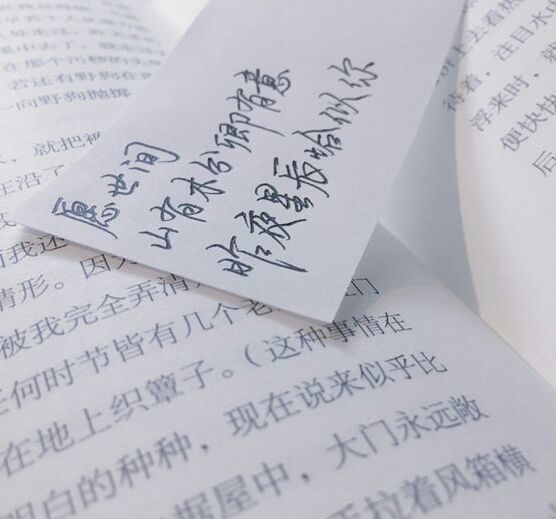 愿世间
山有木兮卿有意
昨夜星辰恰似你
在那个污秽的
若还有野狗在
向野狗抛掷
就把被
王沿了
而我还
情形。因
被我完全弄清
任何时节皆有几个老
门
在地上织簟子。（这种事情在
明白的种种，现在说来似乎比
据屋中，大门永远敞
拉着风箱横
上去看然
待着，注目水
浮来时，就
便快快
后